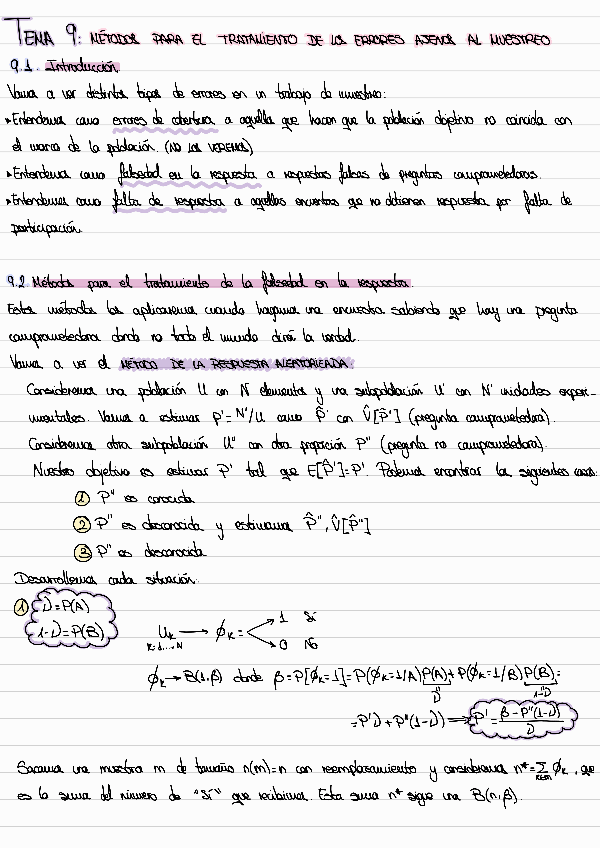 TEMA 9: MÉTODOS PARA EL TRATAMIENTO DE LOS ERRORES AJENOS AL MUESTREO
9.1. Introducción
Vamos a ver distintos tipos de errores en un trabajo de muestreo:
• Entendemos como errores de cobertura a aquellos que hacen que la población objetivo no coincida con
el marco de la población. (NO LOS VEREMOS)
• Entendemos como falsedad en la respuesta a respuestas falsas de preguntas comprometedoras.
• Entendemos como falta de respuesta a aquellas encuestas que no obtienen respuesta por falta de
participación.
9.2 Métodos para el tratamiento de la falsedad en la respuesta.
Estos métodos los aplicaremos cuando hagamos una encuesta sabiendo que hay una pregunta
comprometedora donde no todo el mundo dirá la verdad.
Vamos a ver el MÉTODO DE LA RESPUESTA ALEATORIZADA:
Consideremos una población U con N elementos y una subpoblación U' con N' unidades experi-
mentales. Vamos a estimar P' = N'/U como P̂' con V̂[P̂'] (pregunta comprometedora).
Consideremos otra subpoblación U'' con otra proporción P'' (pregunta no comprometedora).
Nuestro objetivo es estimar P' tal que E[P̂']=P'. Podemos encontrar los siguientes casos:
① P'' es conocida
② P'' es desconocida y estimamos P̂'', V̂[P̂'']
③ P'' es desconocida
Desarrollemos cada situación:
① D=P(A)
1-D=P(B)
U_k → ϕ_k = 1 Sí
K=1,...,N 0 No
ϕ_k → B(1,β) donde β=P[ϕ_k=1]=P(ϕ_k=1/A)P(A)+P(ϕ_k=1/B)P(B)=
D 1-D
=P'D+P''(1-D) → P' = (β-P''(1-D))/D
Sacamos una muestra m de tamaño n(m)=n con reemplazamiento y consideremos n*=∑_{k∈m} ϕ_k, que
es la suma del número de "Sí" que recibimos. Esta suma n* sigue una B(n,β).